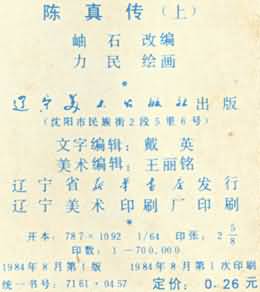 陈真传（上）
岫石 改编
力民 绘画
*
辽宁美术出版社出版
（沈阳市民族街2段5里6号）
文字编辑：戴英
美术编辑：王丽铭
辽宁省新华书店发行
辽宁美术印刷厂印刷
*
开本：787×1092 1/64 印张：2 5/8
印数：1—700,000
1984年8月第1版 1984年8月第1次印刷
统一书号：7161·0457 定价：0.26元